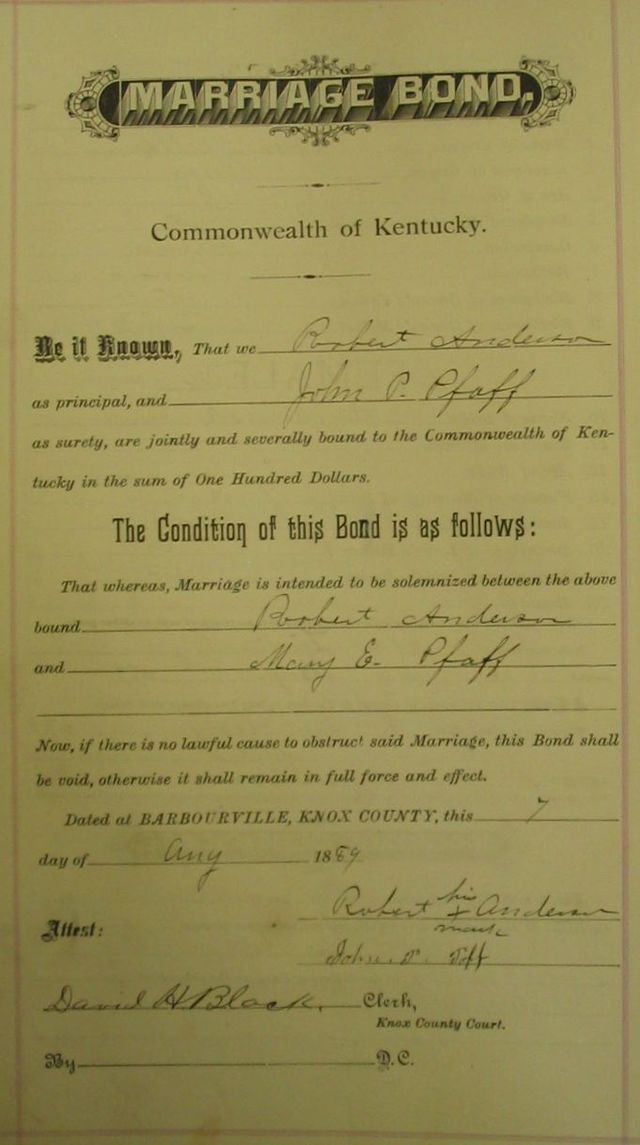 MARRIAGE BOND.
Commonwealth of Kentucky.
Be it Known, That we Robert Anderson
as principal, and John P. Pfaff
as surety, are jointly and severally bound to the Commonwealth of Ken-
tucky in the sum of One Hundred Dollars.
The Condition of this Bond is as follows:
That whereas, Marriage is intended to be solemnized between the above
bound Robert Anderson
and Mary E. Pfaff
Now, if there is no lawful cause to obstruct said Marriage, this Bond shall
be void, otherwise it shall remain in full force and effect.
Dated at BARBOURVILLE, KNOX COUNTY, this 7
day of Aug 1889
his
Robert + Anderson
Attest: mark
John. P.
David H Black. Clerk,
Knox County Court.
By D.C.